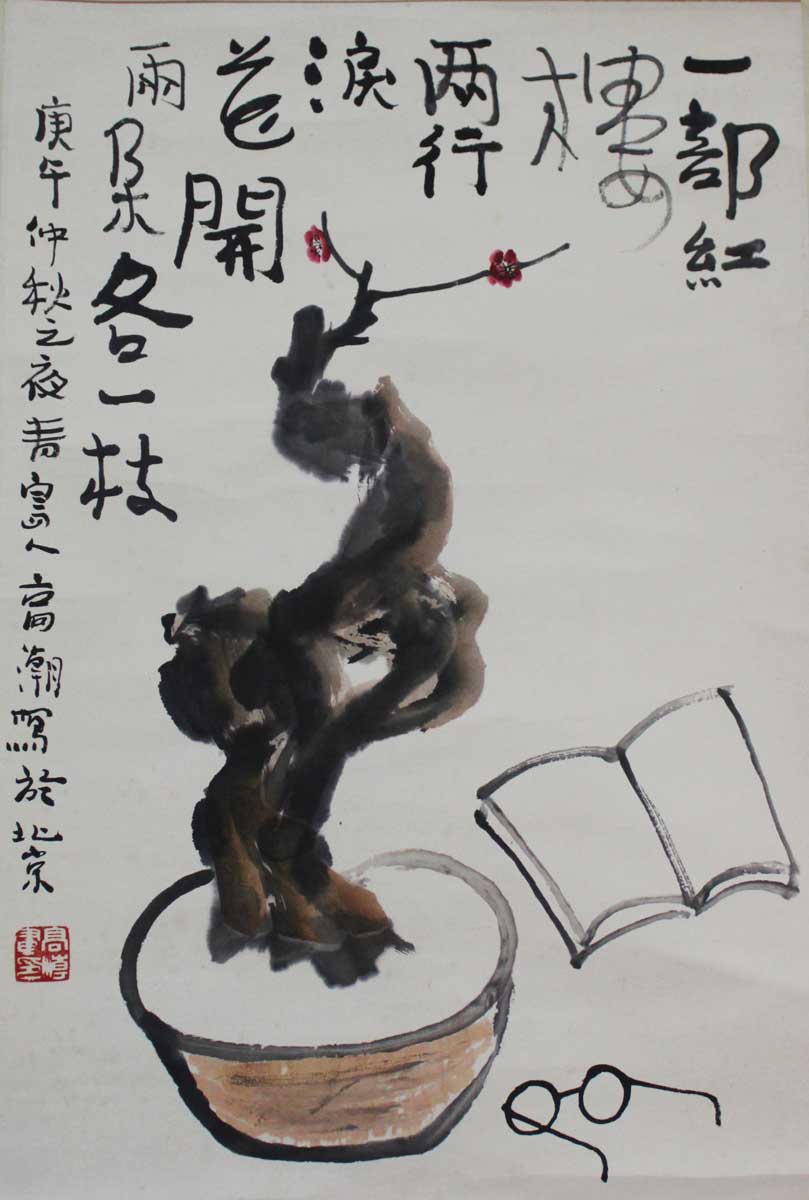 一部紅
樓
两行
淚
花開
兩朵各一枝
庚午仲秋之夜青島人高潮寫於北京